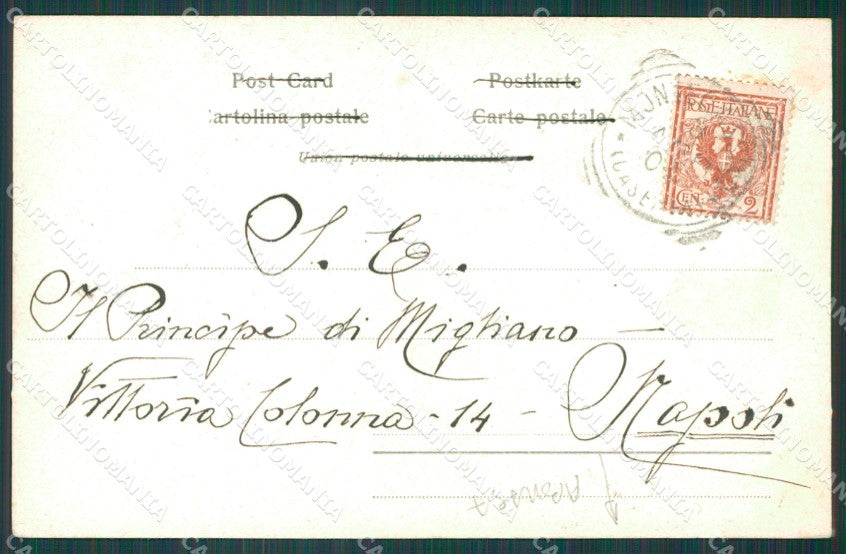 Post Card
Postkarte
Cartolina postale
Carte postale
Union postale universelle
POSTE ITALIANE
CEN. 2
S. E.
Il Principe di Migliano —
Vittoria Colonna - 14 - Napoli
CARTOLINOMANIA